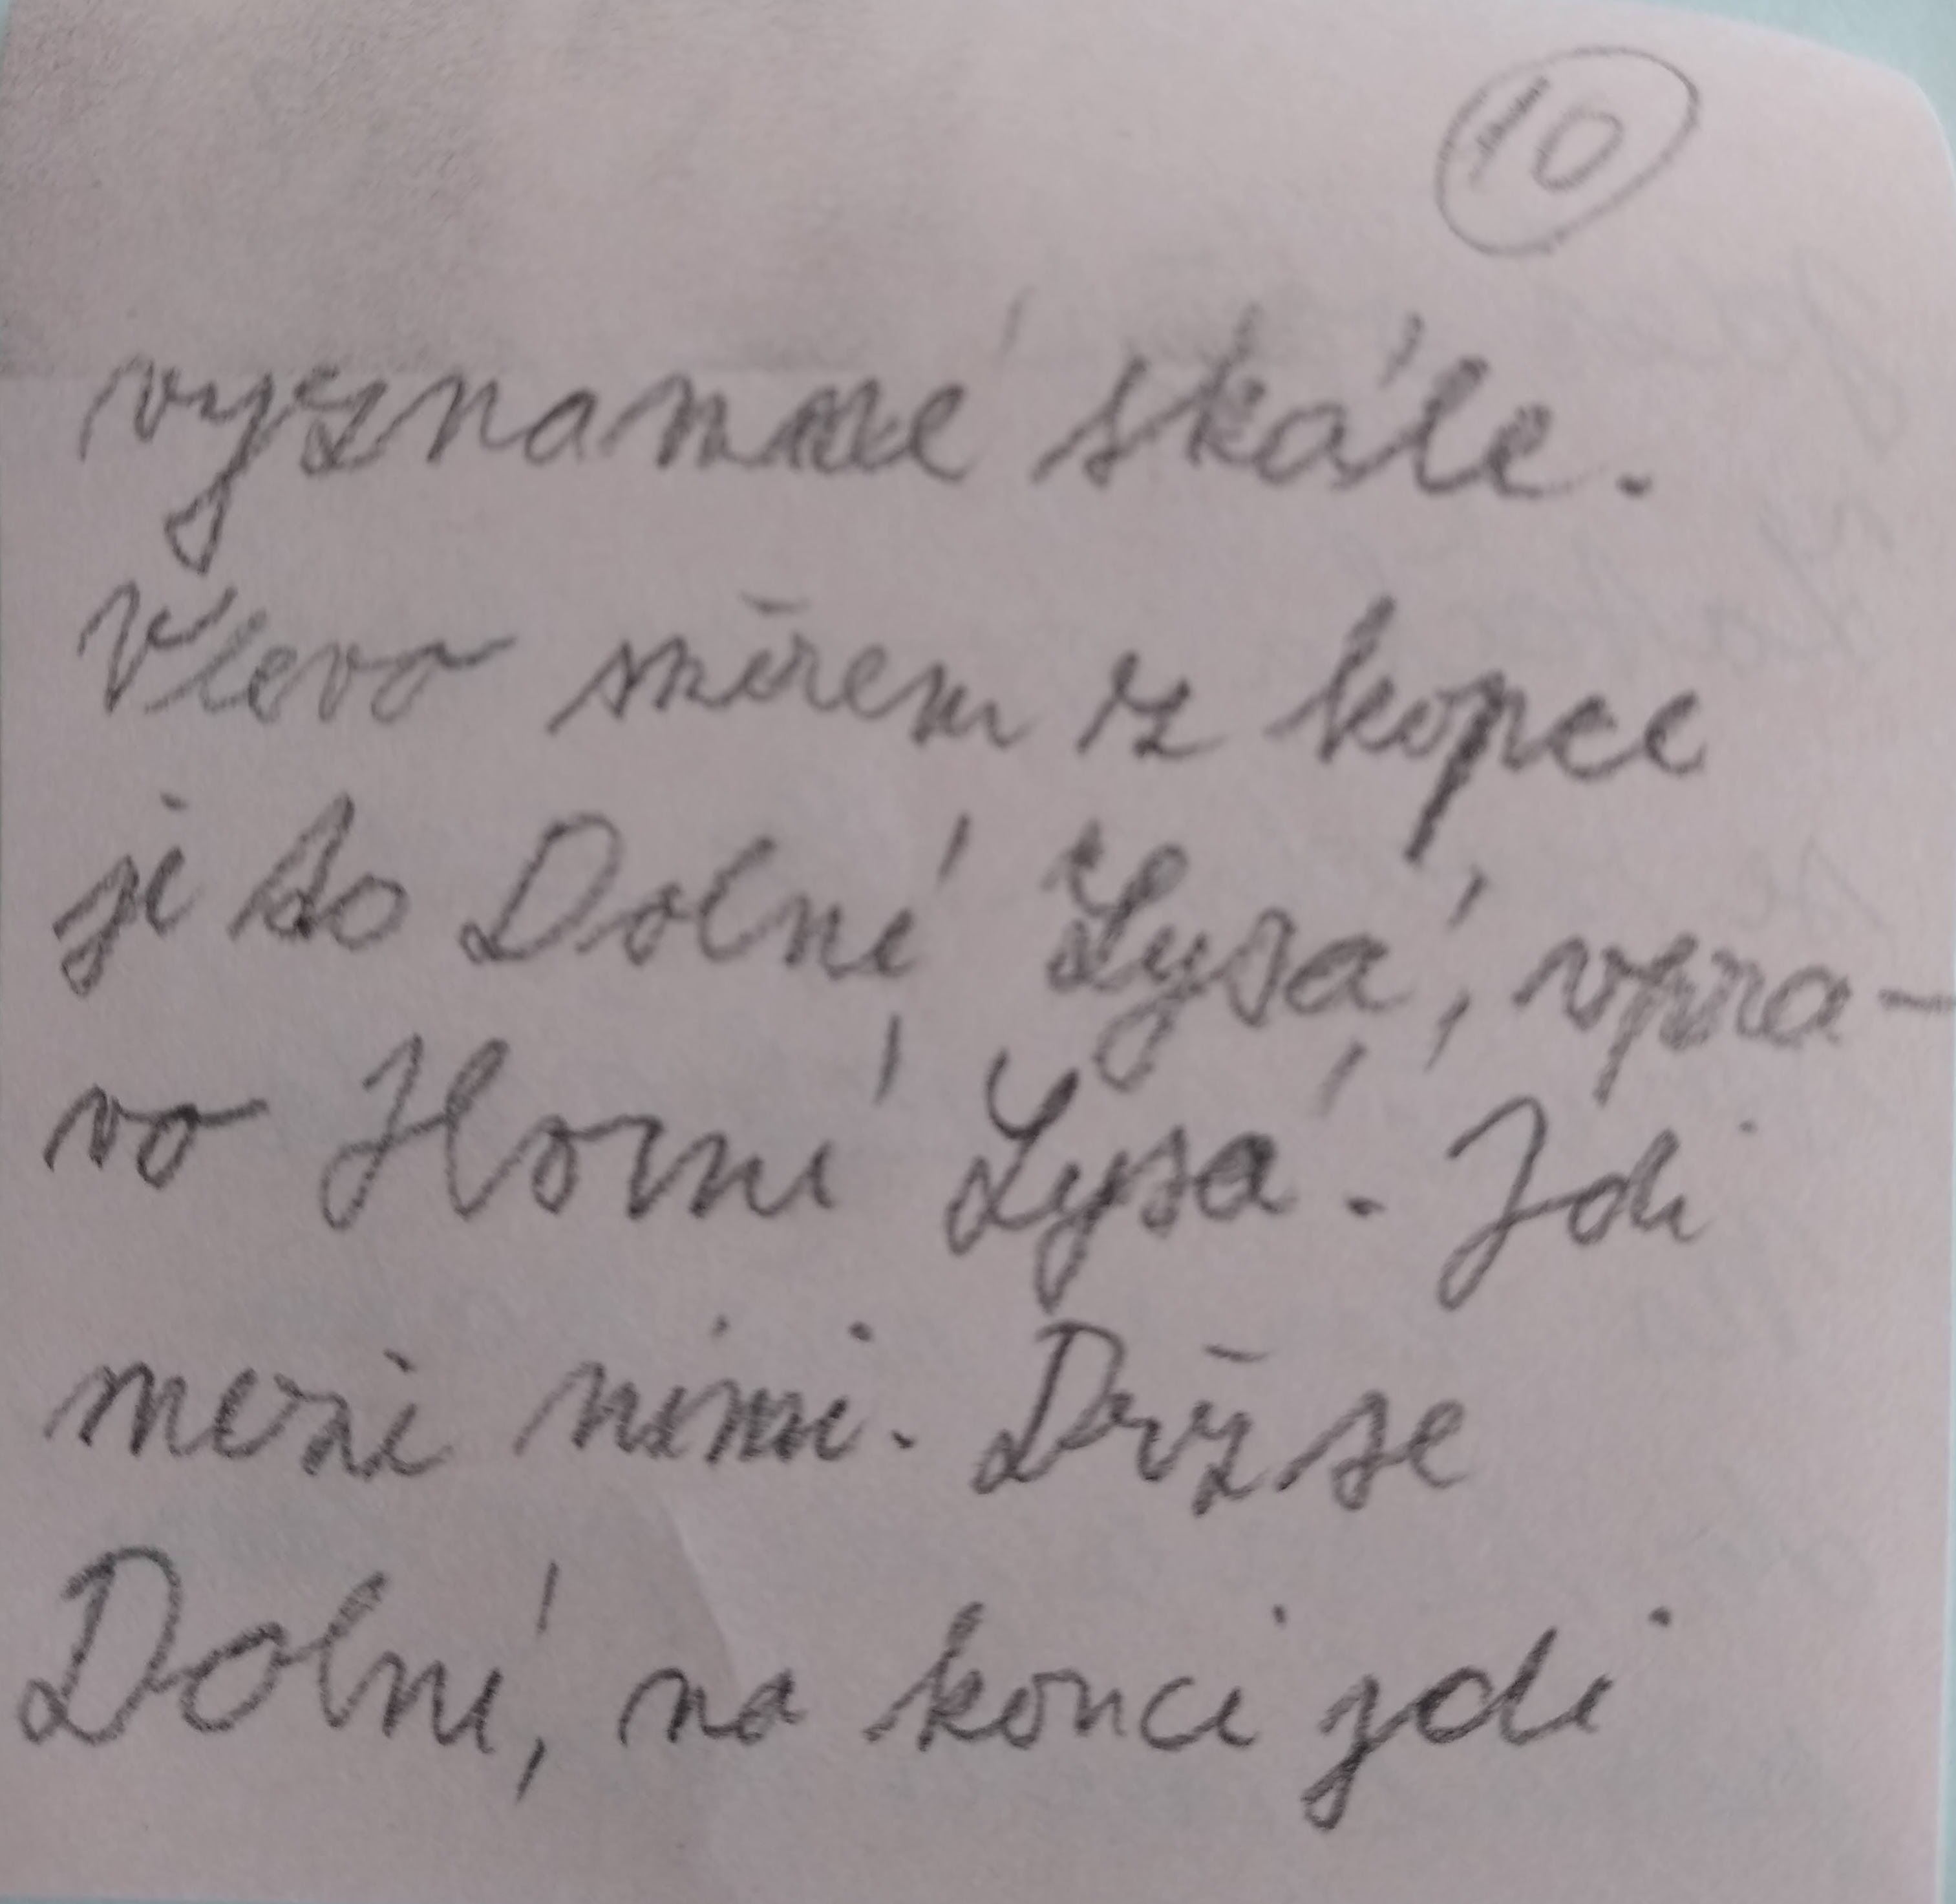 10
významné skále.
Vlevo směrem z kopce
je to Dolní Lysá, vpra-
vo Horní Lysá. Jdi
mezi nimi. Drž se
Dolní, na konci jdi